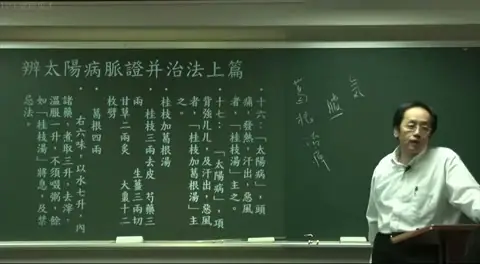 辨太陽病脈證并治法上篇
十六：「太陽病」，頭
痛，發熱，汗出，惡風
者，「桂枝湯」主之。
十七：「太陽病」，項
背強几几，及汗出，惡風
者，「桂枝加葛根湯」主
之。
桂枝加葛根湯
桂枝三兩去皮 芍藥三
兩
甘草二兩炙 生薑三兩切
大棗十二
枚劈
葛根四兩
右六味，以水七升，內
諸藥，煮取三升，去滓，
溫服一升，不須啜粥，餘
如「桂枝湯」將息，及禁
忌法。
氣